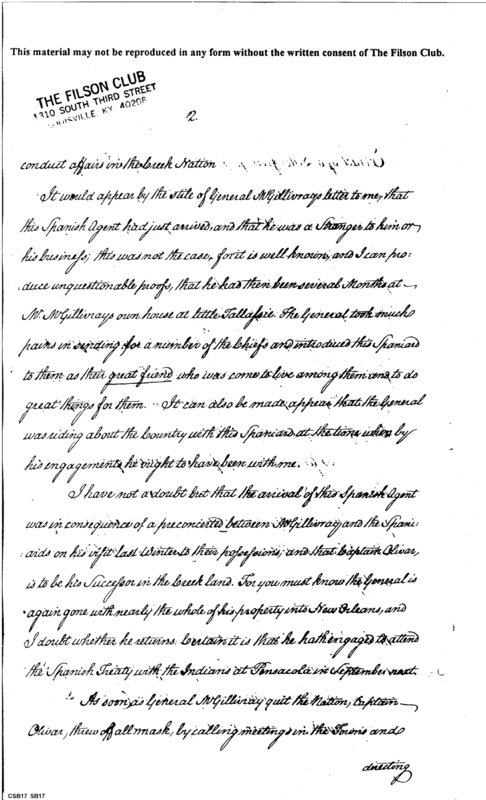 This material may not be reproduced in any form without the written consent of The Filson Club.
THE FILSON CLUB
1310 SOUTH THIRD STREET
LOUISVILLE, KY 40208
2
conduct affairs in the Creek Nation
It would appear by the stile of General McGillivrays letter to me, that
this Spanish Agent had just arrived, and that he was a Stranger to him or
his business; this was not the case, for it is well known, and I can pro:
duce unquestionable proofs, that he had then been several Months at
Mr. McGillivrays own house at little Tallassie. The General took much
pains in sending for a number of the Chiefs and introduced this Spaniard
to them as their great friend who was come to live among them and to do
great things for them. It can also be made appear that the General
was riding about the Country with this Spaniard at the time when by
his engagements he ought to have been with me.
I have not a doubt but that the arrival of this Spanish Agent
was in consequence of a preconcerted between McGillivray and the Spani:
ards on his visit last Winter to their possessions; and that Captain Olivar,
is to be his Successor in the Creek land. For you must know the General is
again gone with nearly the whole of his property into New Orleans, and
I doubt whether he returns: certain it is that he hath engaged to attend
the Spanish Treaty with the Indians at Pensacola in September next.
As soon as General McGillivray quit the Nation, Captain
Olivar, threw off all mask, by calling meetings in the Towns and
directing
CSB17 SB17